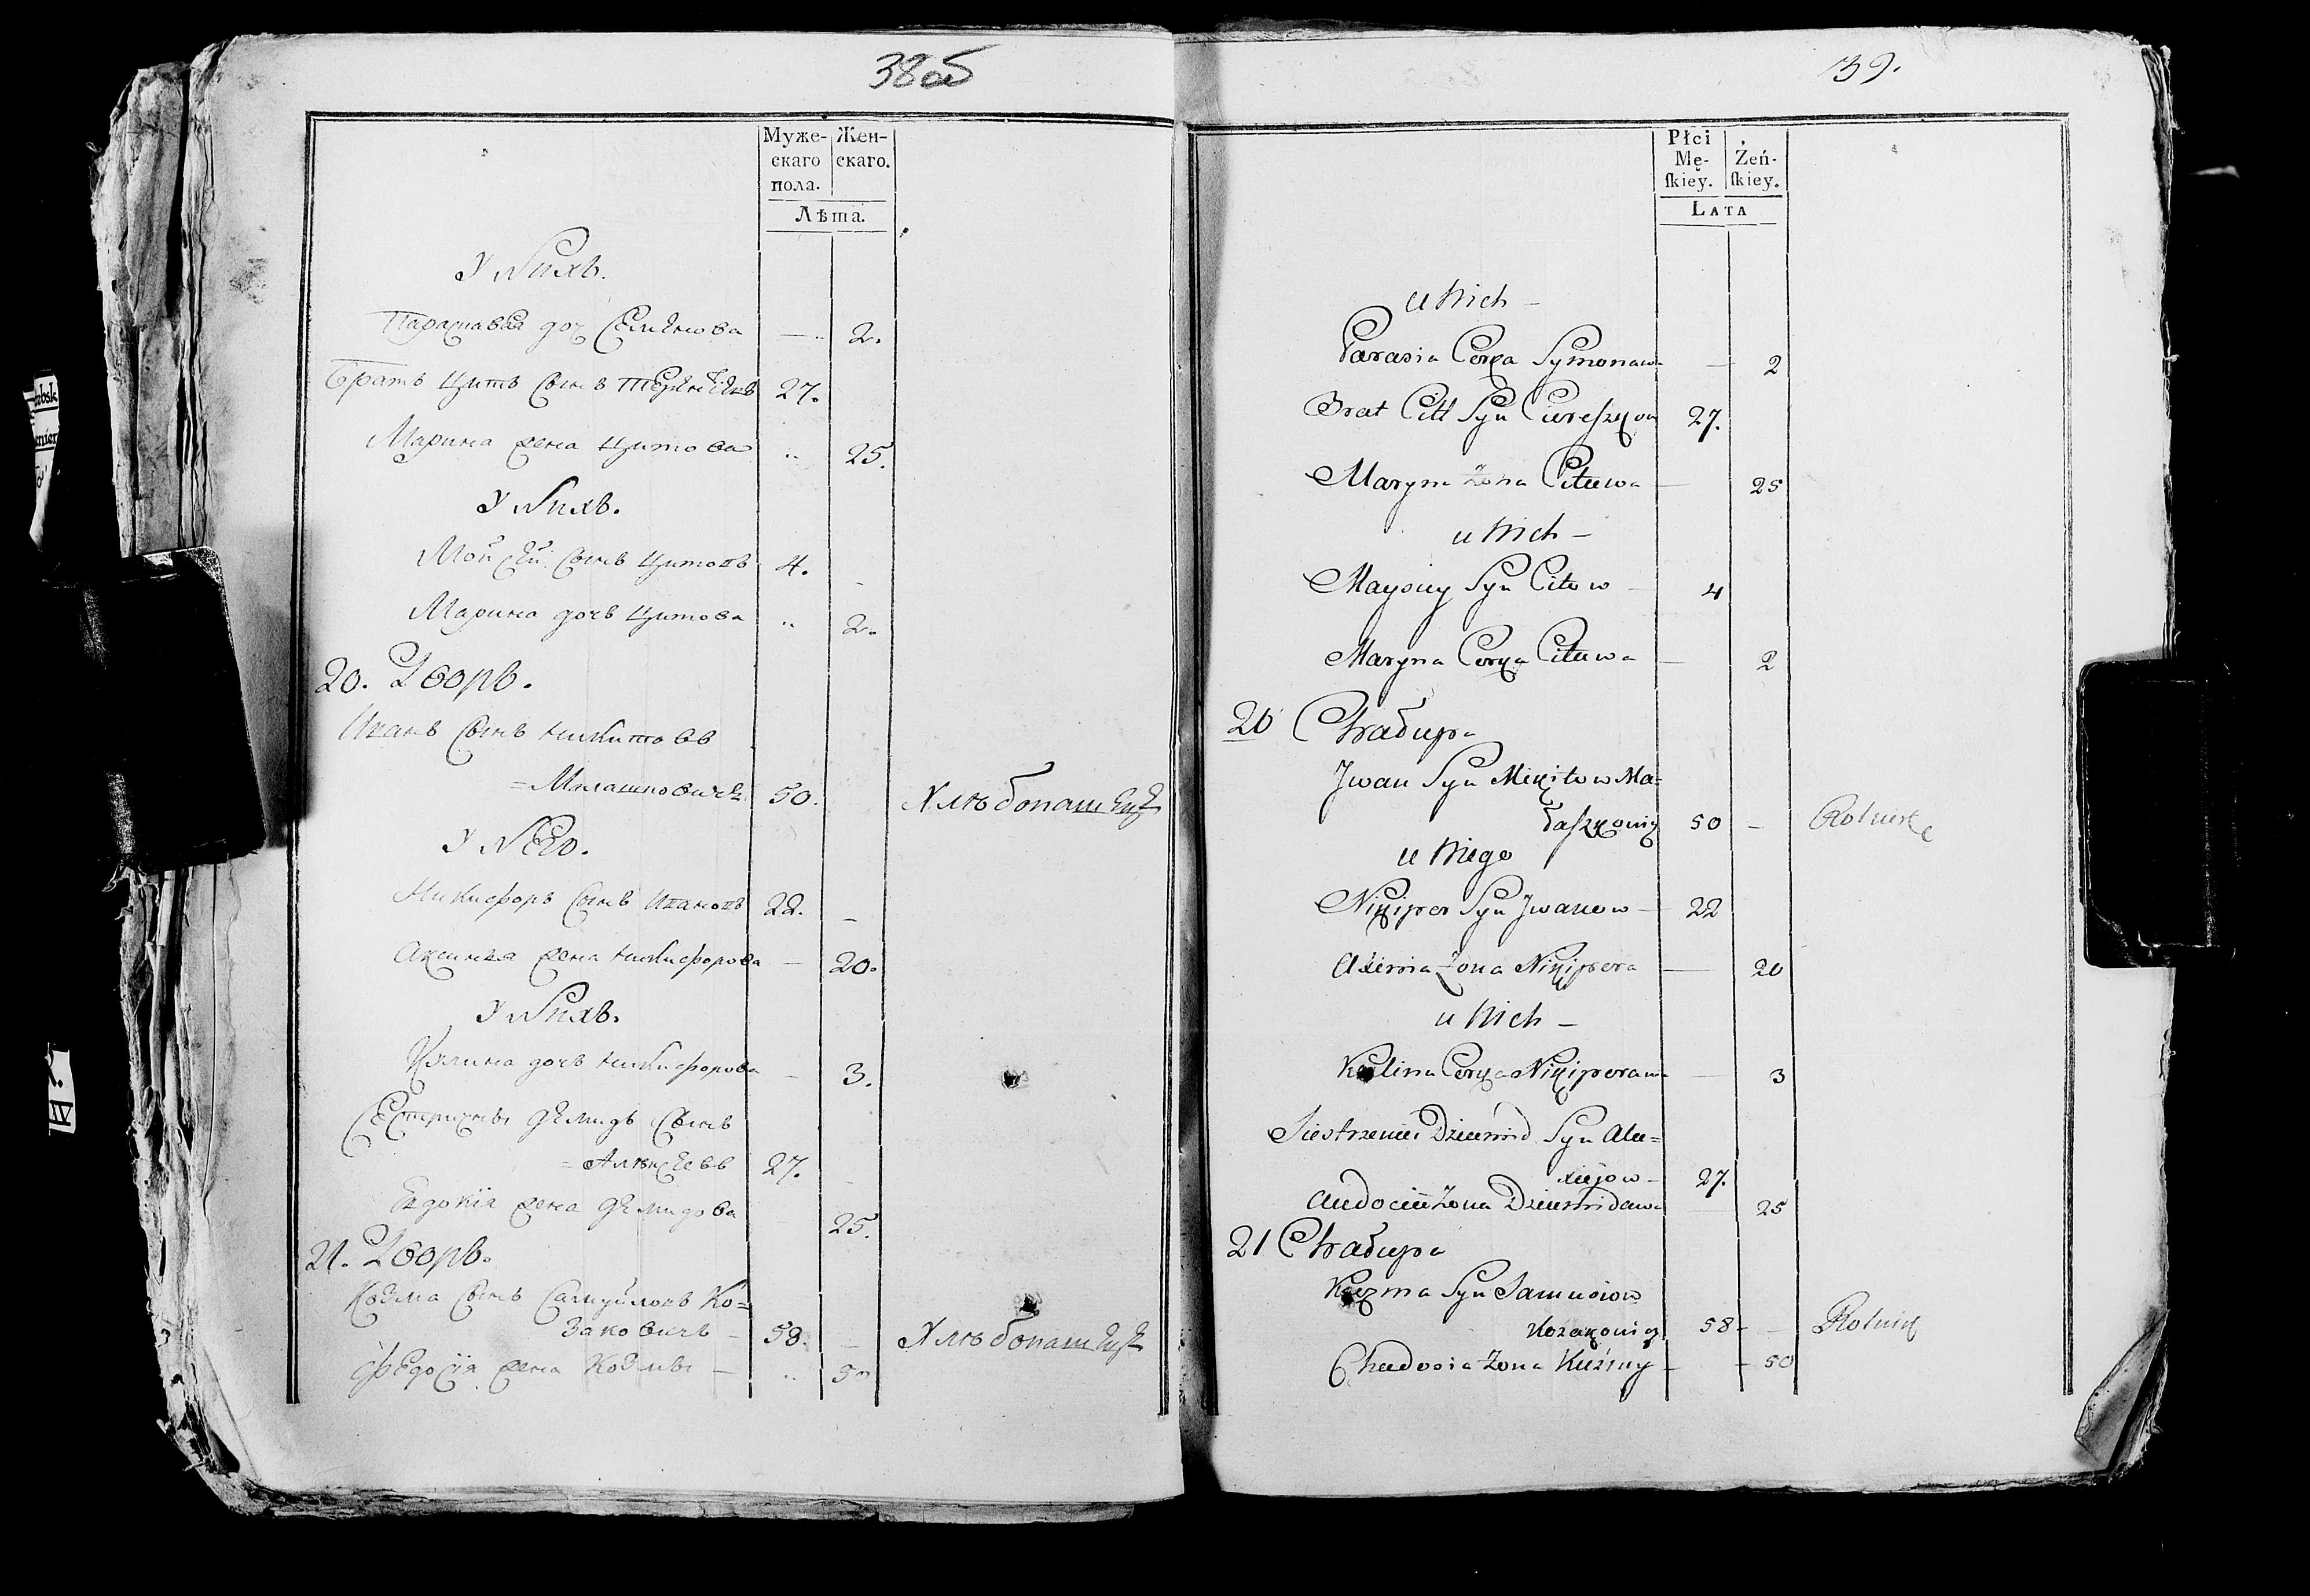 38 об
Муже-
скаго
пола.
Жен-
скаго.
Лѣта.
У Нихъ.
Параскавея доч Семенова — 2.
Братъ Цитъ Сынъ 27.
Марина жена Цитова .. 25.
У Нихъ.
Мойсей Сынъ Цитовъ 4. -
Марина дочь Цитова .. 2.
20. Дворъ.
Иванъ Сынъ Никитовъ
=Малашковичъ 50. Хлѣбопашецъ
У Него.
Никифоръ Сынъ Ивановъ 22. -
Аксинья жена Никифорова — 20.
У Нихъ.
Кулина дочь Никифорова — 3.
Сестринъ Демидъ Сынъ
=Алексеевъ 27. -
Евдокія жена Демидова 25.
21. Дворъ.
Козма Сынъ Самуйловъ Ко=
заковичъ — 58. - Хлѣбопашецъ
Федосія жена Козмы — .. 50
39.
Płci
Mę-
ſkiey.
Żeń-
ſkiey.
LATA
u Nich —
Parasia Corka Symonawa — 2
Brat Citt Syn 27.
Maryna Żona Cituwa — 25
u Nich —
Maysiey Syn Citow — 4
Maryna Corka Cituwa — 2
20 Chałupa
Jwan Syn Mikitow Ma=
łaszkowicz 50 — Rolnik
u Niego
Nikiper Syn Jwanow — 22
Axinia Żona Nikipera — 20
u Nich —
Kulina Corka Nikiperawa — 3
Siestrzeniec Dziemid Syn Ale=
xiejow — 27.
Audocia Żona Dziemidawa 25
21 Chałupa
Kuzma Syn Samusiow
Kozakowicz 58 - — Rolnik
Chadosia Żona Kuźmy — - 50